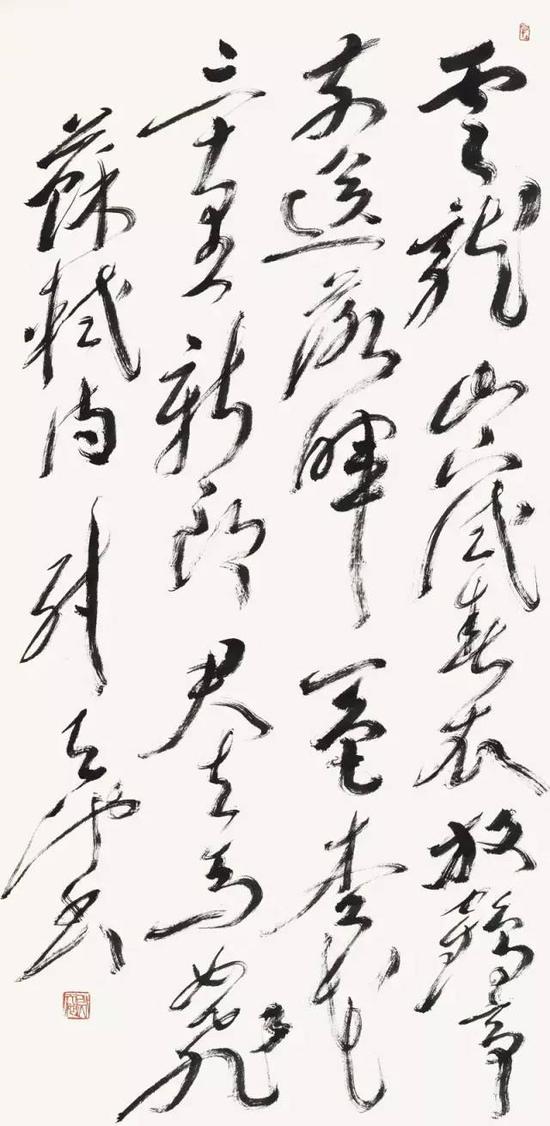 雲龍山下試春衣放鶴亭
前送落暉一色杏花
三十里新郎君去馬如飛
蘇軾詩 尉天池書